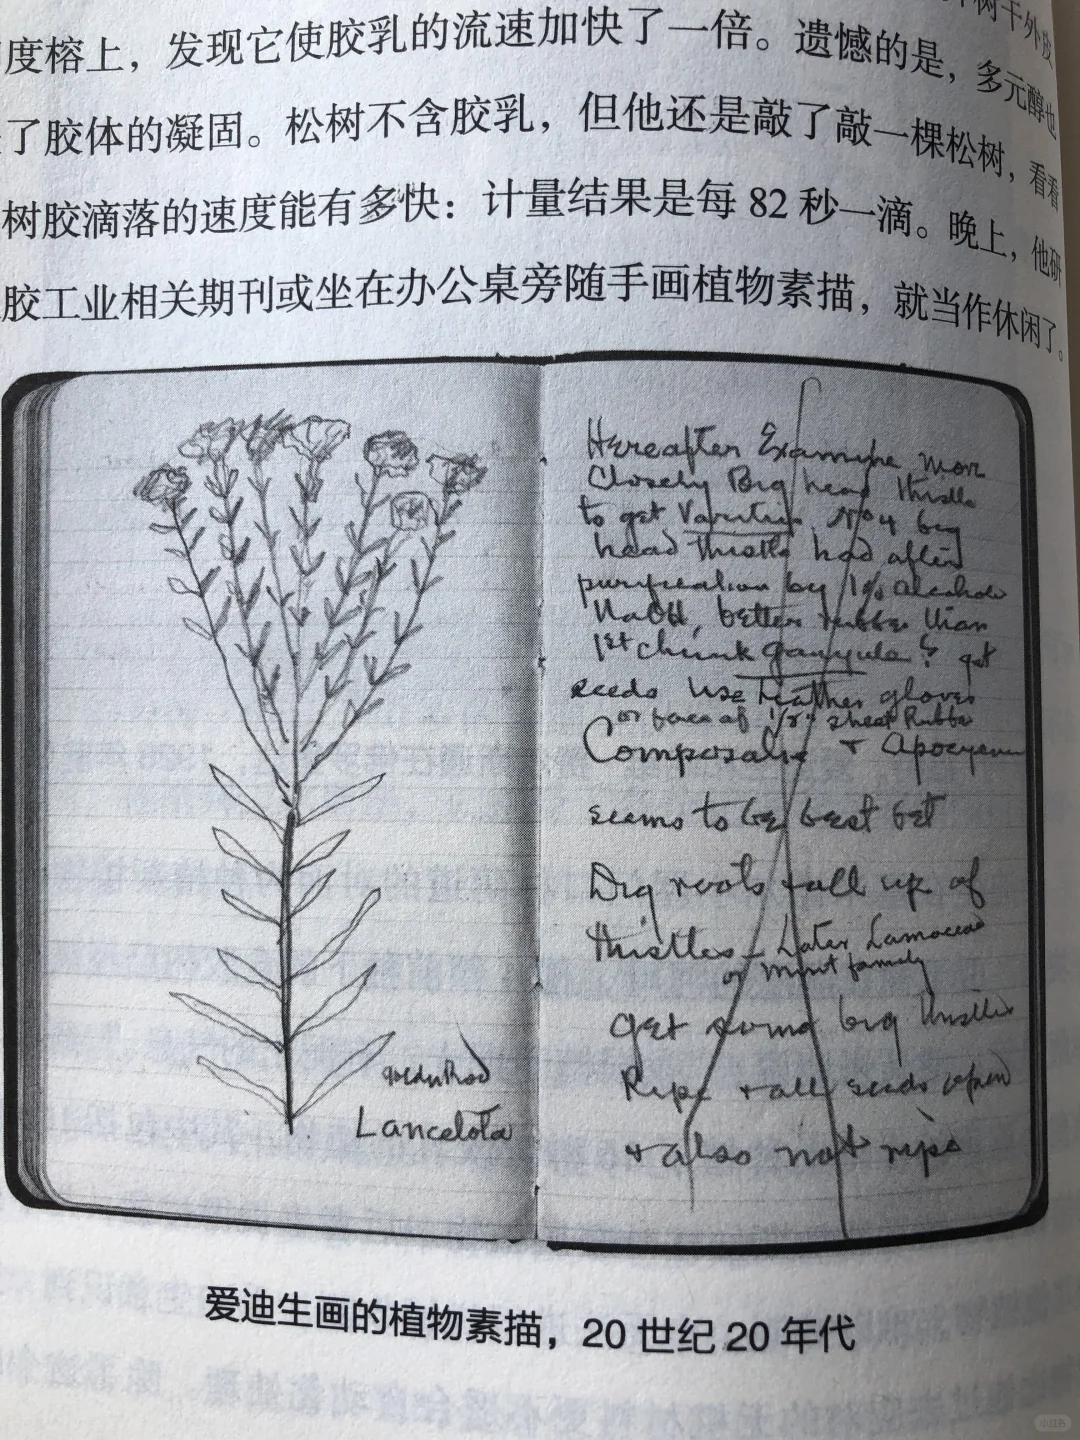 树干外皮
度榕上，发现它使胶乳的流速加快了一倍。遗憾的是，多元醇也
了胶体的凝固。松树不含胶乳，但他还是敲了敲一棵松树，看看
树胶滴落的速度能有多快：计量结果是每 82 秒一滴。晚上，他研
胶工业相关期刊或坐在办公桌旁随手画植物素描，就当作休闲了。
GoldnRod
Lancelota
Hereafter Examine more
Closely Big head thistle
to get Varieties No 4 big
head thistle had after
purification by 1% alcoholic
NaOH, better rubber than
1st chunk guayule & get
seeds use leather gloves
or face of 1/8" sheet Rubber
Compositae + Apocynum
seems to be best bet
Dig roots + all up of
thistles – Later
or mint family
get some big thistles
Ripe + all seeds open
+ also not ripe
爱迪生画的植物素描，20 世纪 20 年代
小红书